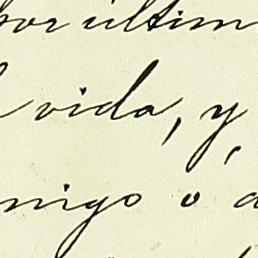 por últim
vida, y,
migo o a